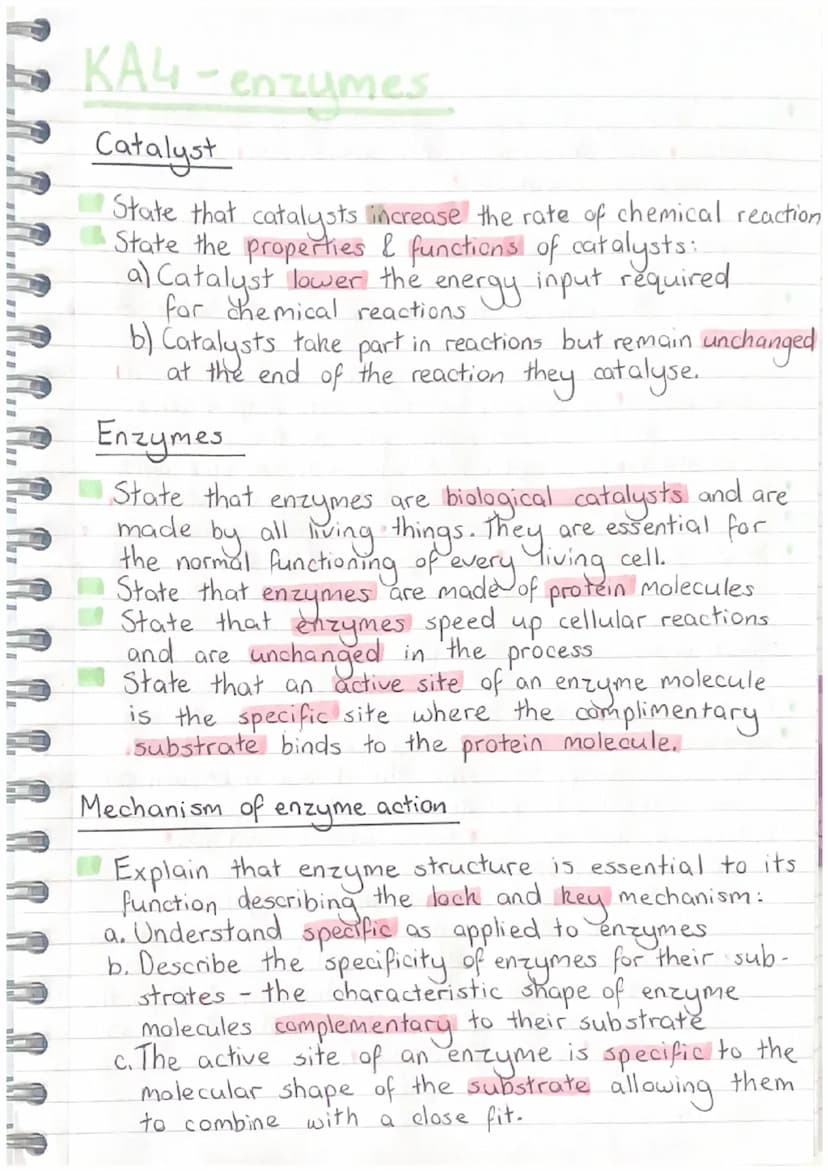 KA4 - enzymes
Catalyst
State that catalysts increase the rate of chemical reaction
State the properties & functions of catalysts:
a) Catalyst lower the energy input required
for chemical reactions
b) Catalysts take part in reactions but remain unchanged
at the end of the reaction they catalyse.
Enzymes
State that enzymes are biological catalysts and are
made by all living things. They are essential for
the normal functioning of every living cell.
State that enzymes are made of protein molecules
State that enzymes speed up cellular reactions
and are unchanged in the process
State that an active site of an enzyme molecule
is the specific site where the complimentary
substrate binds to the protein molecule.
Mechanism of enzyme action
Explain that enzyme structure is essential to its
function describing the lock and key mechanism:
a. Understand specific as applied to enzymes
b. Describe the specificity of enzymes for their sub-
strates - the characteristic shape of enzyme
molecules complementary to their substrate
c. The active site of an enzyme is specific to the
molecular shape of the substrate allowing them
to combine with a close fit.